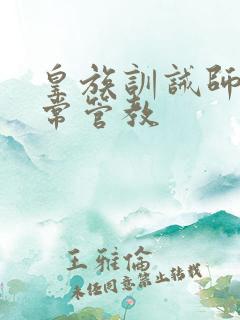 皇族訓誡師
常管教
王雅倫
未经同意禁止转载